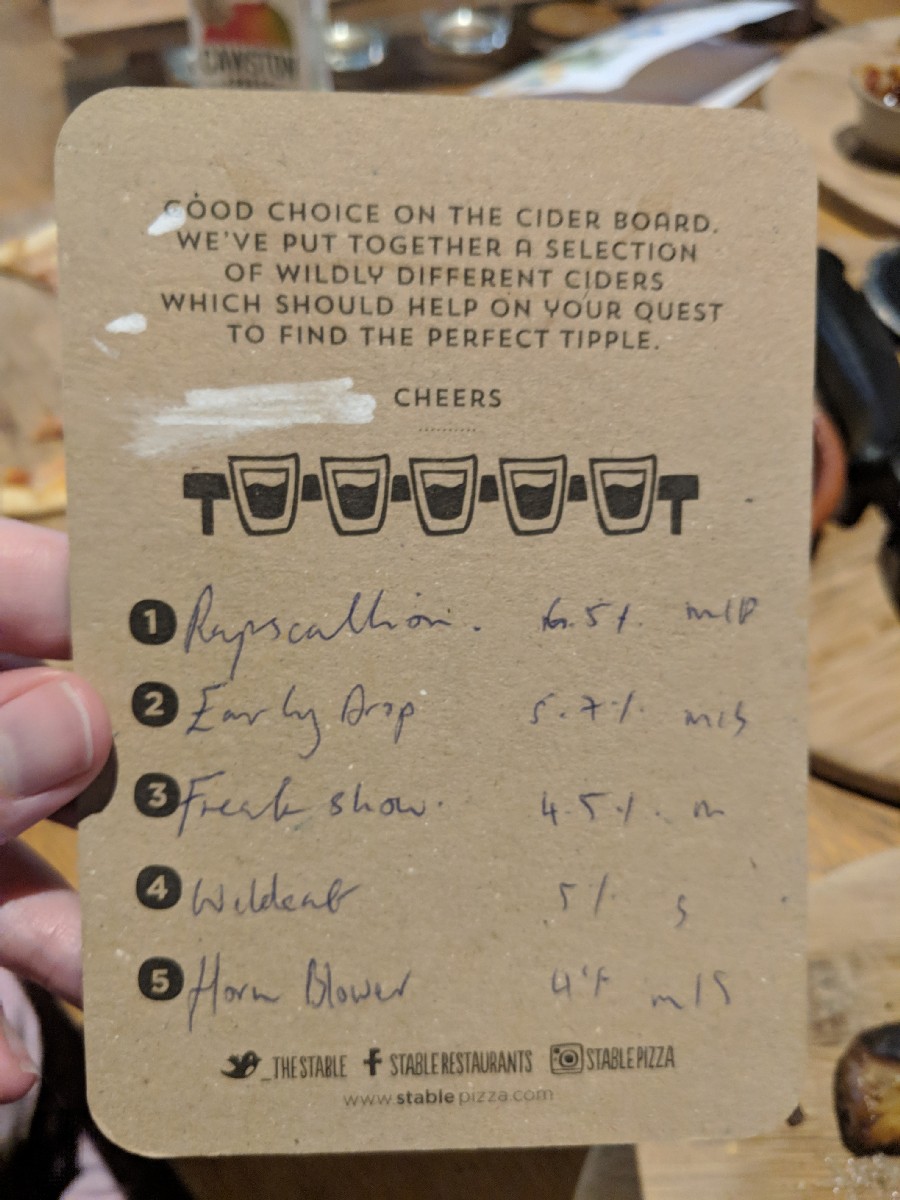 GOOD CHOICE ON THE CIDER BOARD.
WE'VE PUT TOGETHER A SELECTION
OF WILDLY DIFFERENT CIDERS
WHICH SHOULD HELP ON YOUR QUEST
TO FIND THE PERFECT TIPPLE.
CHEERS
1 Rapscallion. 6.5% m/D
2 Early Drop 5.7% m/S
3 Freak show. 4.5%. m
4 Wildcat 5% S
5 Horn Blower m/S
_THESTABLE STABLERESTAURANTS STABLEPIZZA
www.stablepizza.com